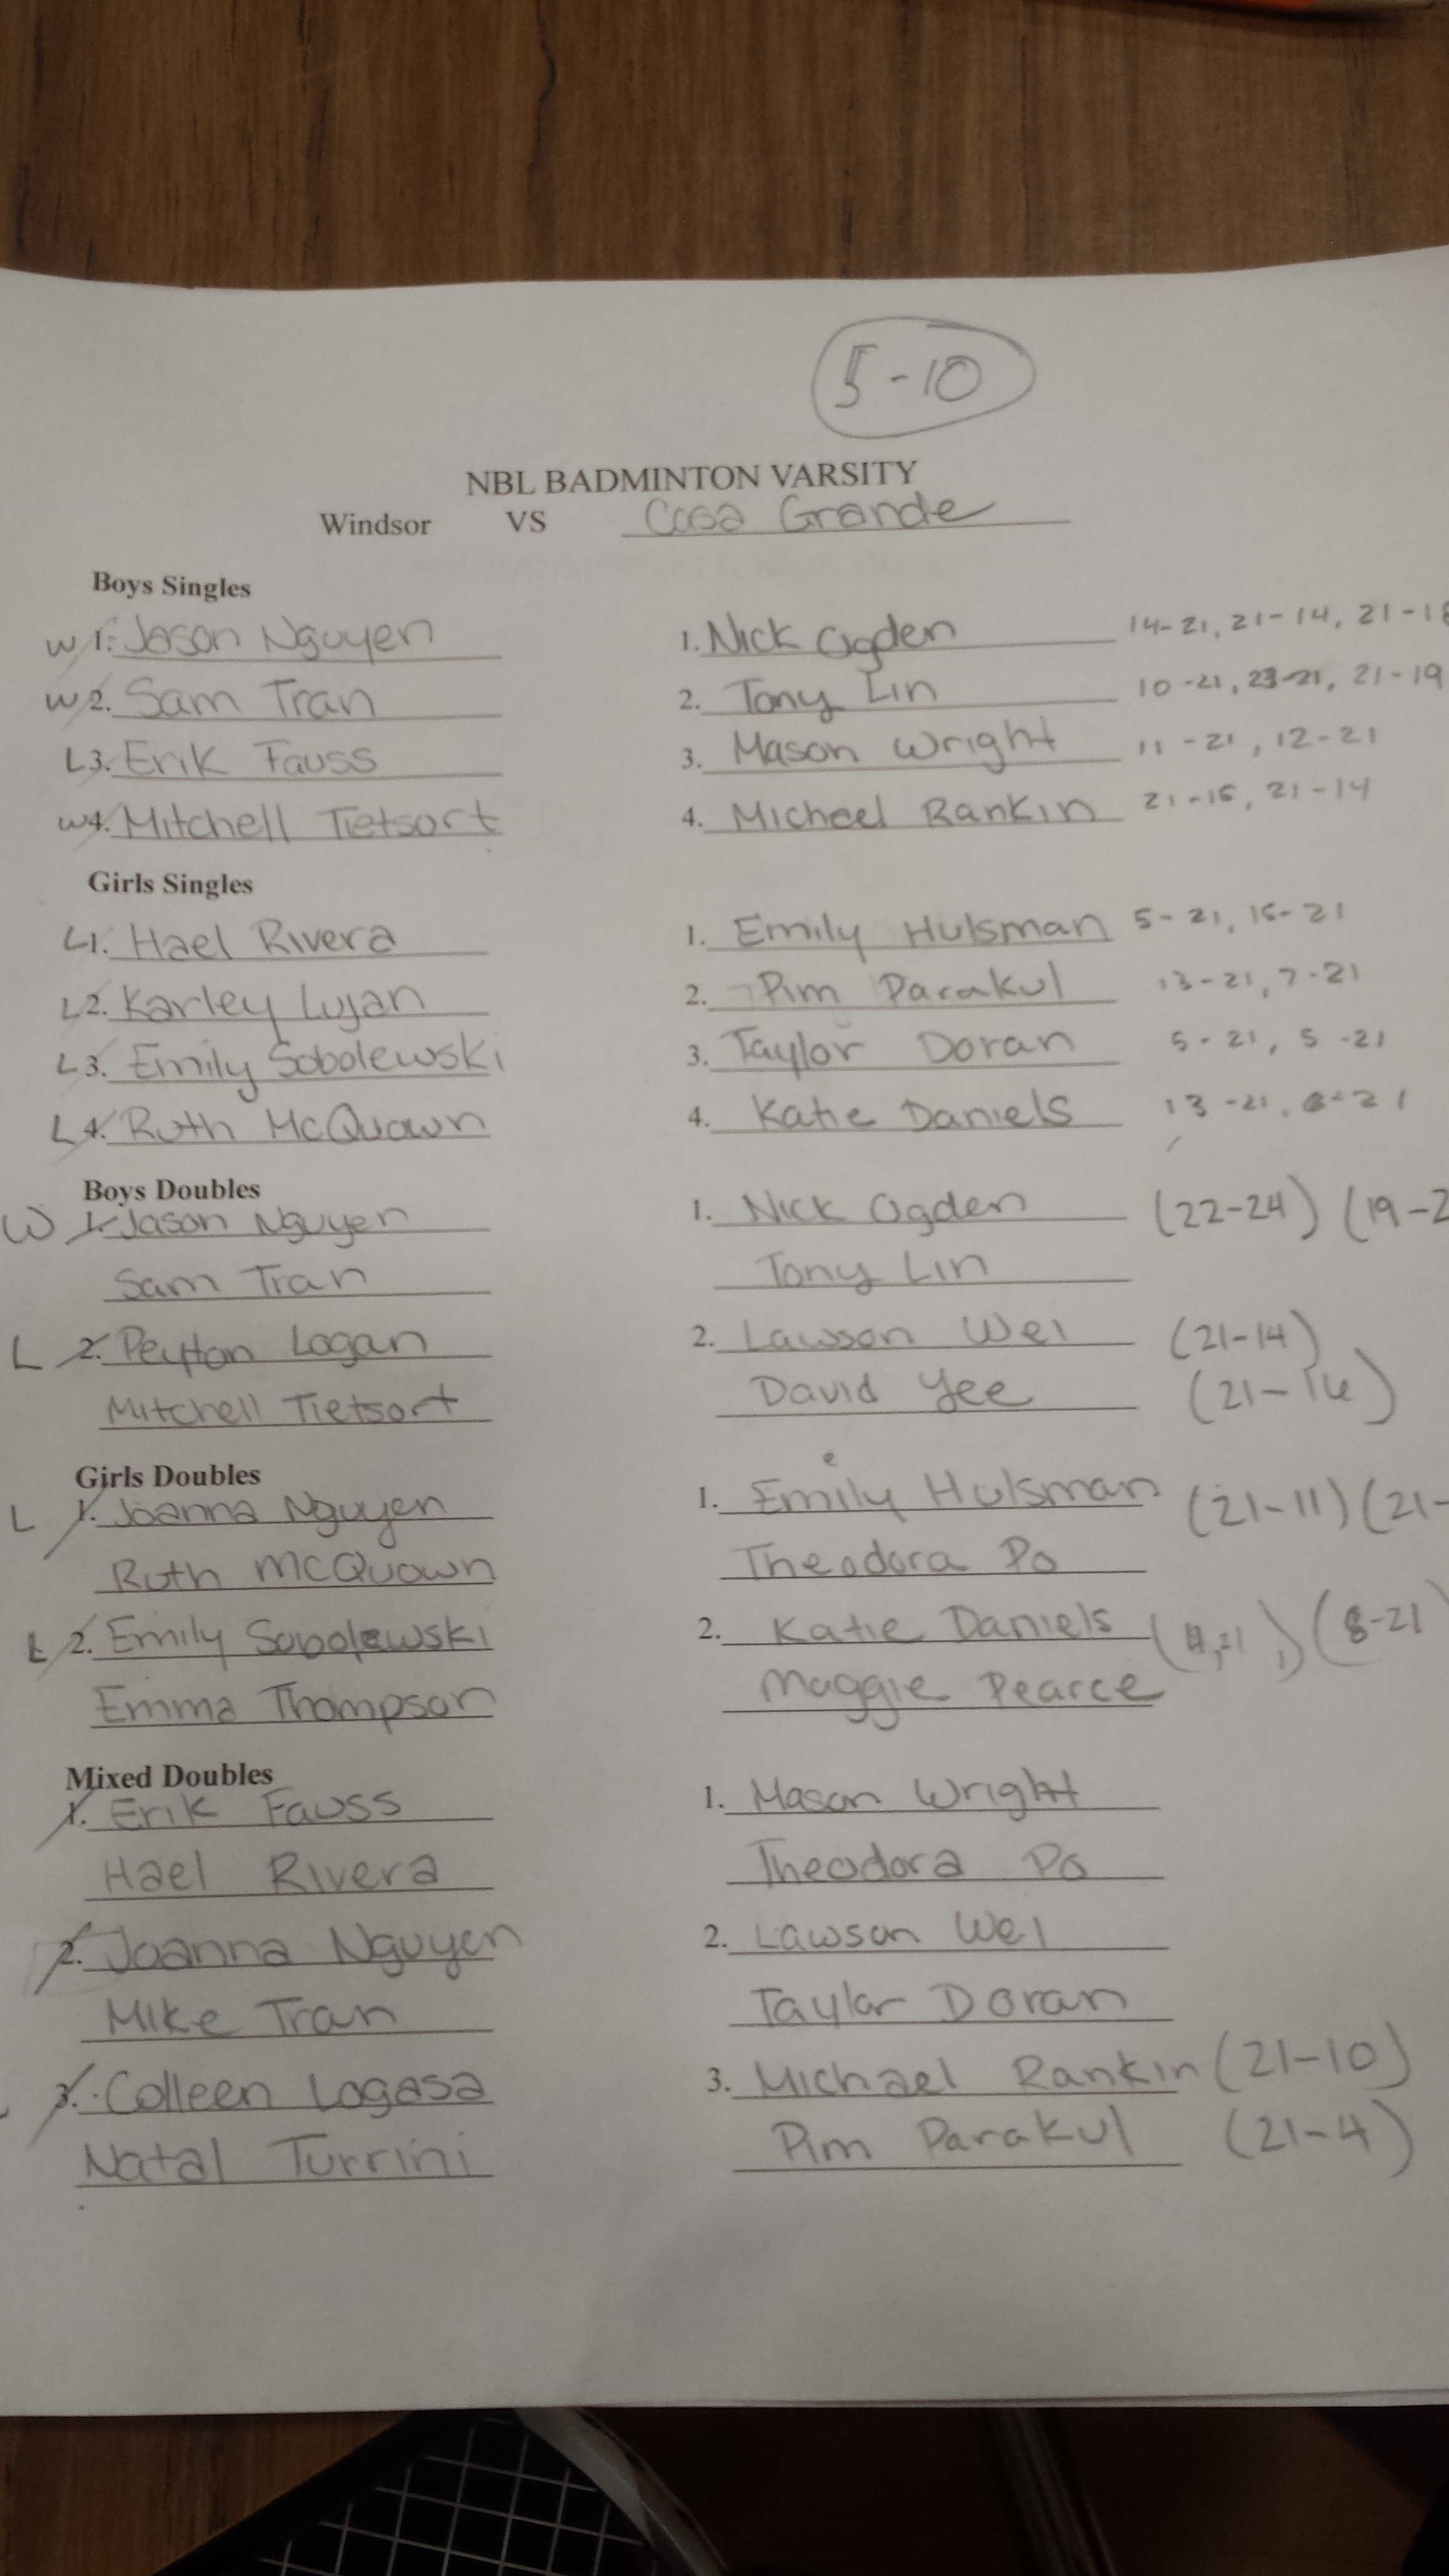 5-10
NBL BADMINTON VARSITY
Windsor VS Casa Grande
Boys Singles
W 1. Jason Nguyen 1. Nick Ogden 14-21, 21-14, 21-18
W 2. Sam Tran 2. Tony Lin 10-21, 23-21, 21-19
L 3. Erik Fauss 3. Mason Wright 11-21, 12-21
W 4. Mitchell Tietsort 4. Micheel Rankin 21-15, 21-14
Girls Singles
L 1. Hael Rivera 1. Emily Hulsman 5-21, 15-21
L 2. Karley Lujan 2. Pim Parakul 13-21, 7-21
L 3. Emily Sobolewski 3. Taylor Doran 5-21, 5-21
L 4. Ruth McQuown 4. Katie Daniels 13-21, 8-21
Boys Doubles
W 1. Jason Nguyen 1. Nick Ogden (22-24) (19-2
Sam Tran Tony Lin
L 2. Peyton Logan 2. Lawson Wei (21-14)
Mitchell Tietsort David Yee (21-16)
Girls Doubles
L 1. Joanna Nguyen 1. Emily Hulsman (21-11) (21-
Ruth McQuown Theodora Po
L 2. Emily Sobolewski 2. Katie Daniels (8-21)
Emma Thompson Maggie Pearce
Mixed Doubles
1. Erik Fauss 1. Mason Wright
Hael Rivera Theodora Po
2. Joanna Nguyen 2. Lawson Wei
Mike Tran Taylor Doran
3. Colleen Logasa 3. Michael Rankin (21-10)
Natal Turrini Pim Parakul (21-4)